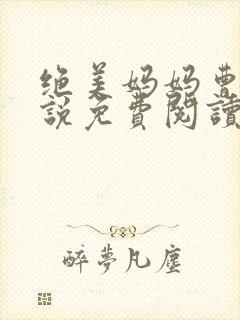 绝美妈妈曹
説免費閱讀
醉夢凡塵